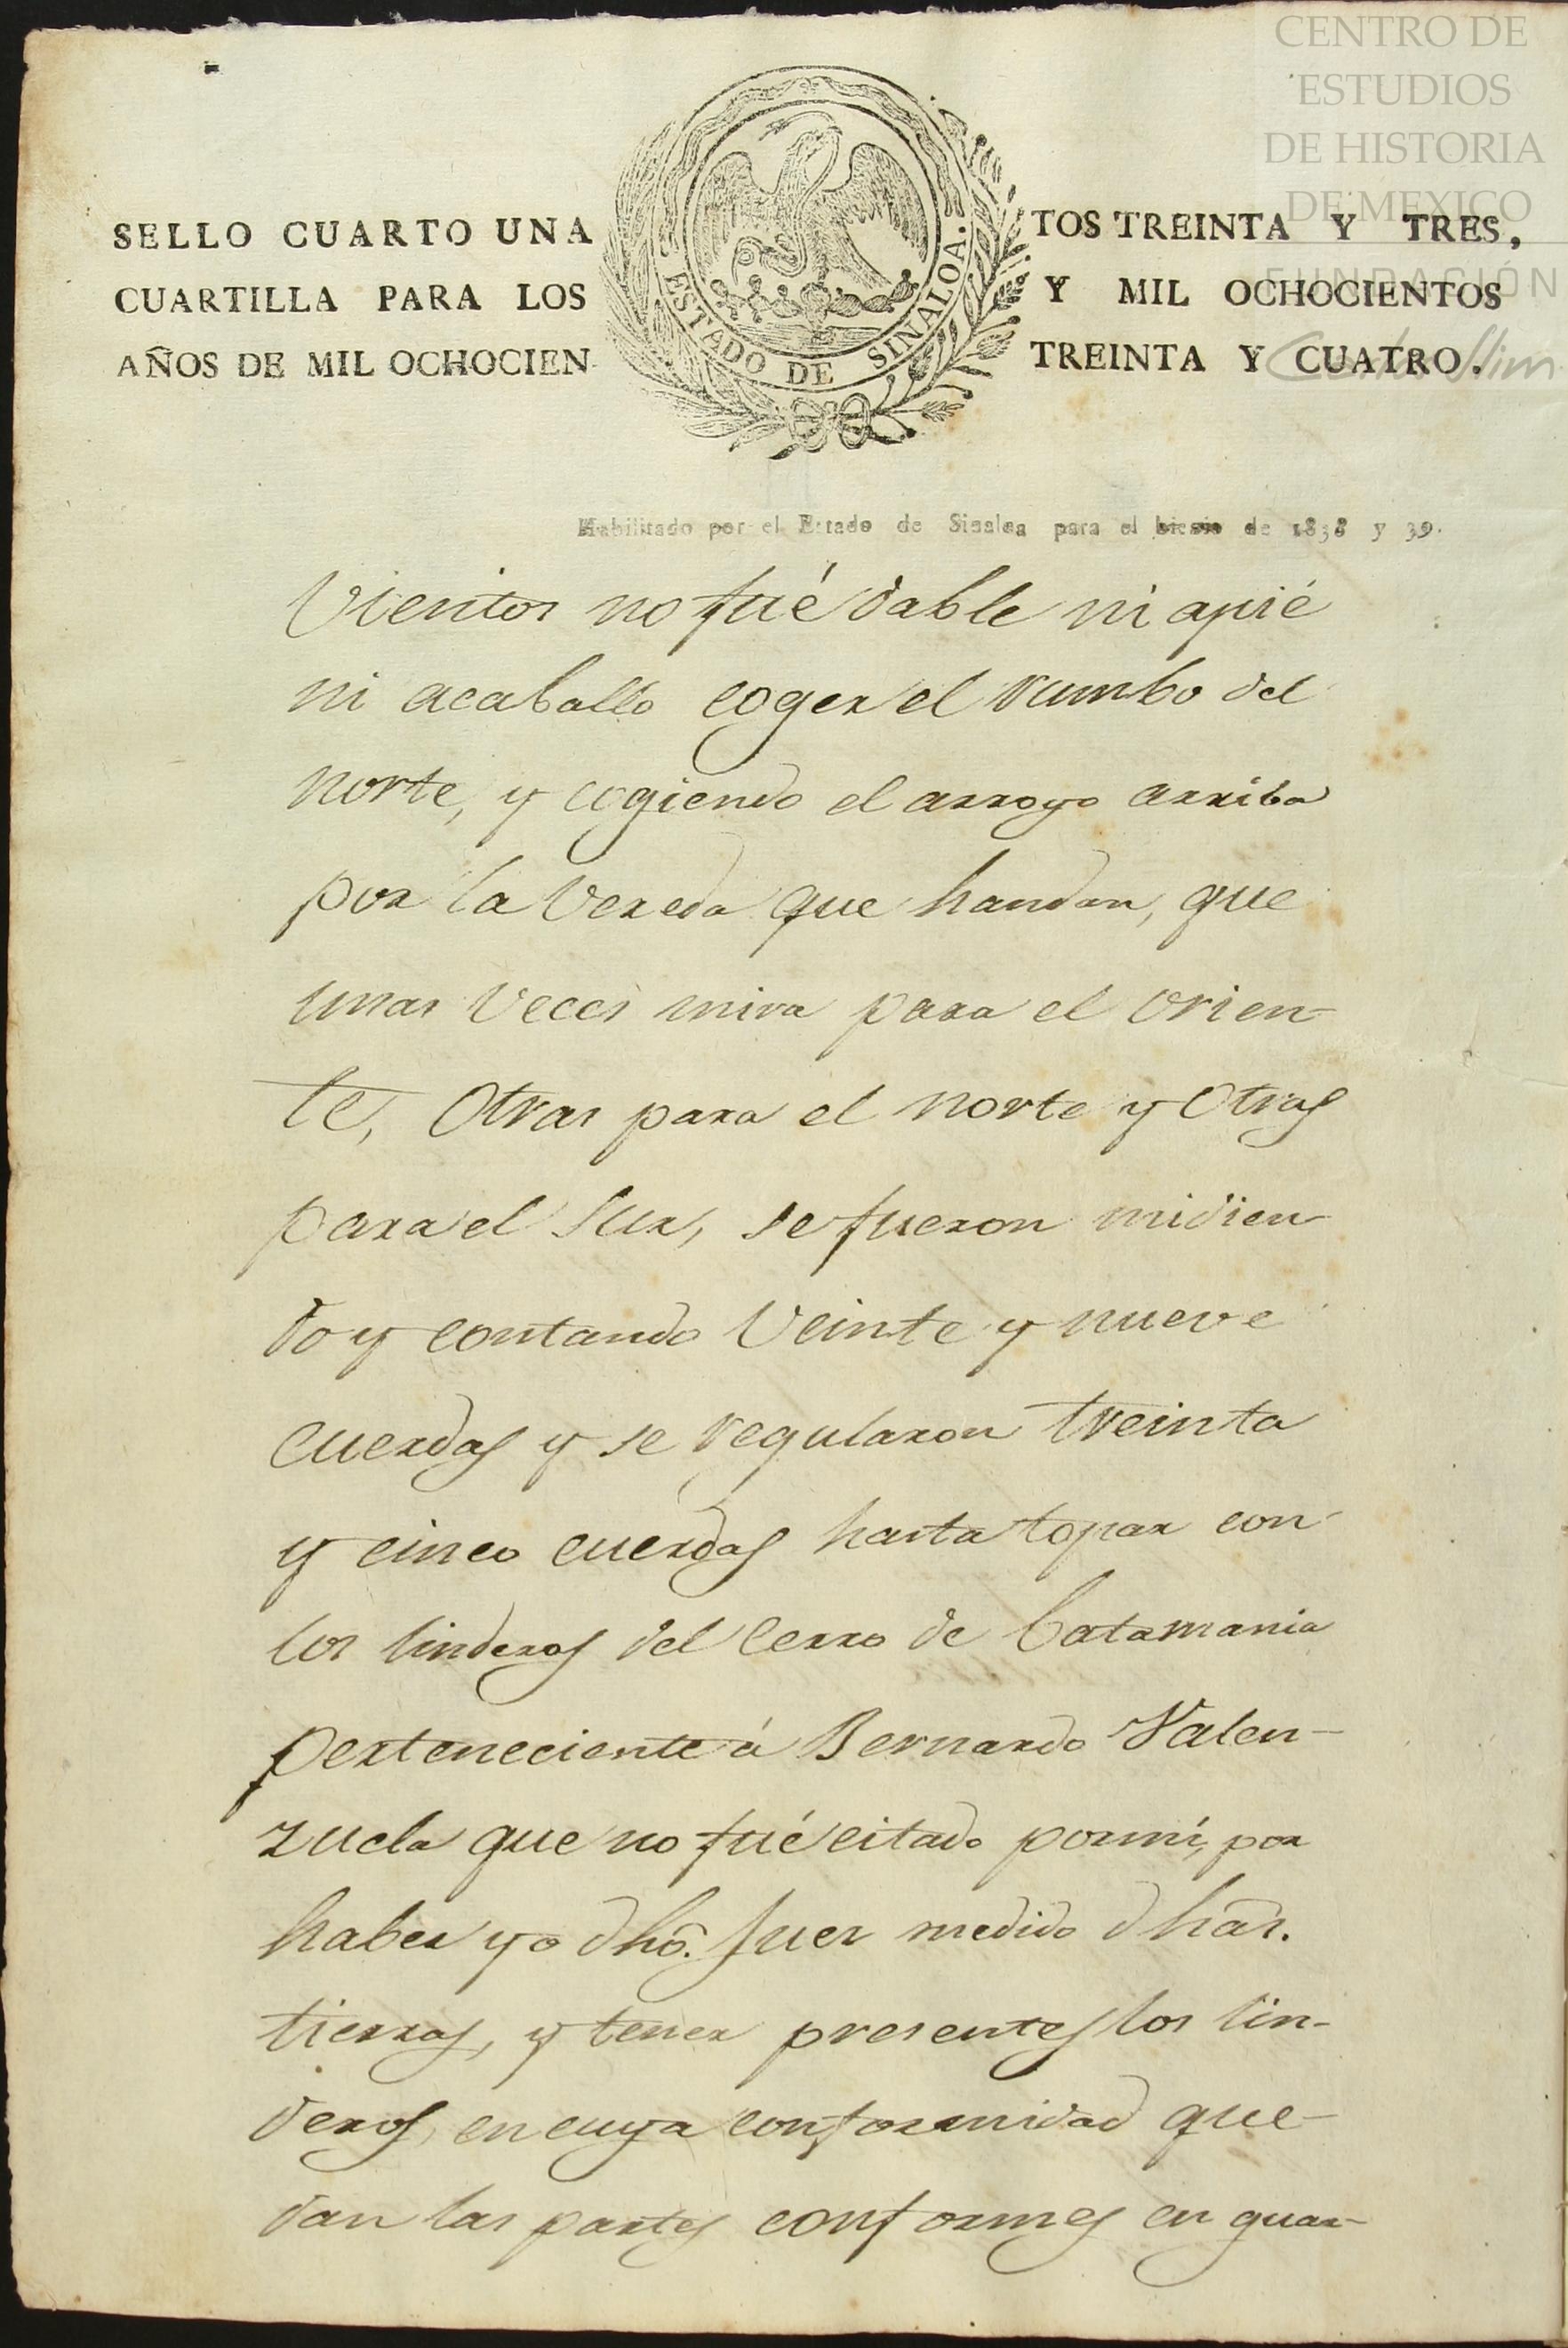 CENTRO DE
ESTUDIOS
DE HISTORIA
DE MEXICO
FUNDACIÓN
Carlos Slim
SELLO CUARTO UNA
CUARTILLA PARA LOS
AÑOS DE MIL OCHOCIEN
ESTADO DE SINALOA.
TOS TREINTA Y TRES,
Y MIL OCHOCIENTOS
TREINTA Y CUATRO.
Habilitado por el Estado de Sinaloa para el bienio de 1838 y 39.
Vientos no fué dable ni apié
ni acaballo coger el rumbo del
norte, y cogiendo el arroyo arriba
por la Vereda que handan, que
unas Veces mira para el orien-
te, Otras para el norte y Otras
para el Sur, se fueron midien-
do y contando Veinte y nueve
cuerdas y se regularon treinta
y cinco cuerdas hasta topar con
los linderos del Cerro de Catamania
perteneciente á Bernardo Valen-
zuela que no fué citado pormi, por
haber yo dho. Juez medido dhas.
tierras, y tener presentes los lin-
deros, en cuya conformidad que-
dan las partes conformes en guar-